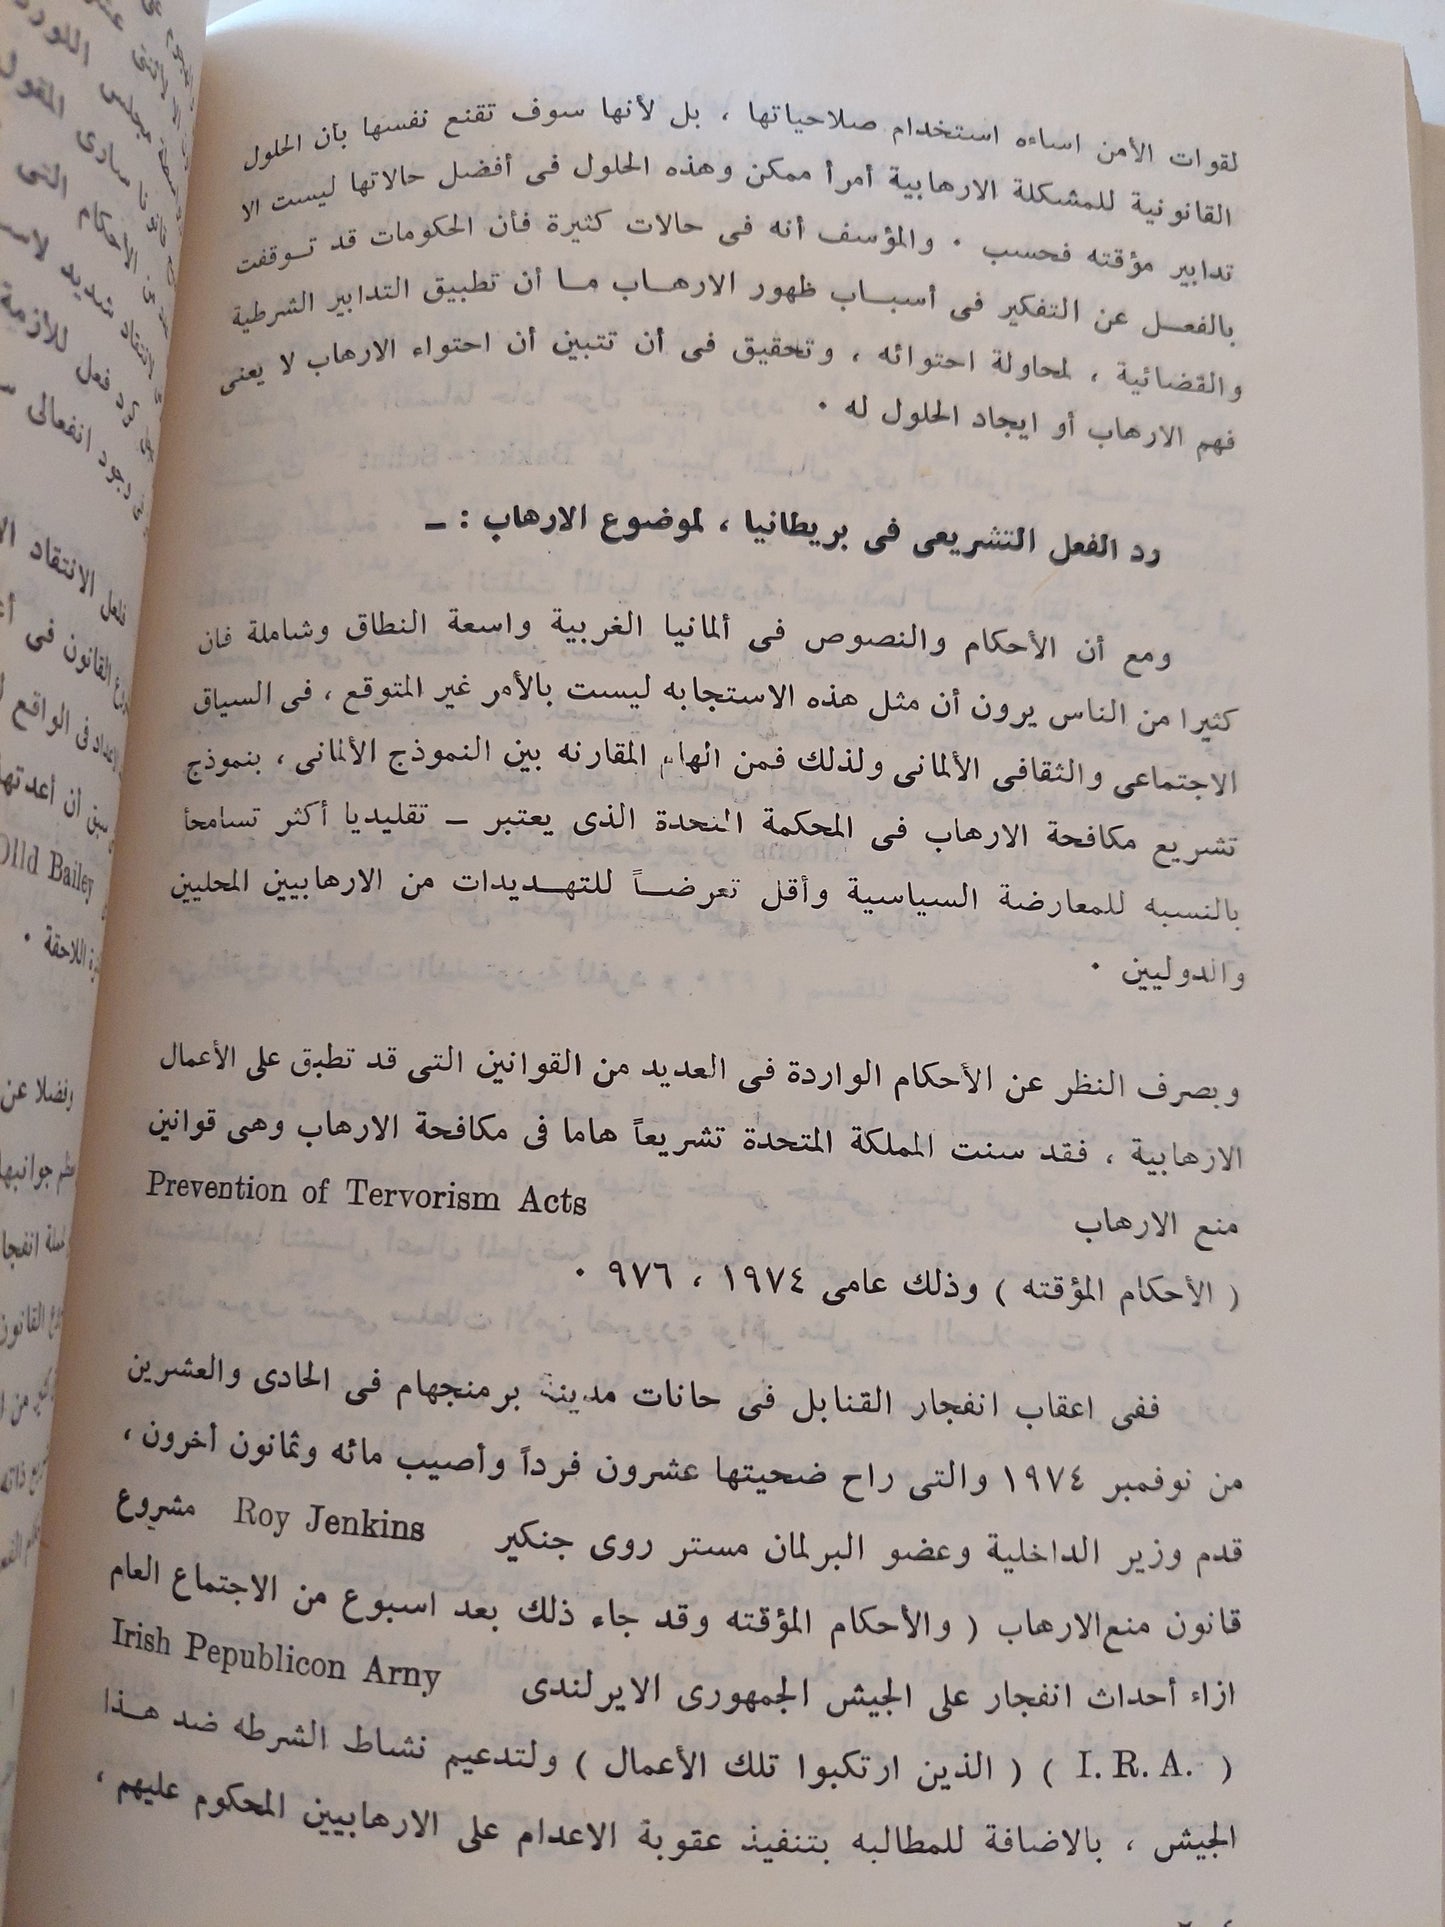 لقوات الأمن اساءه استخدام صلاحياتها ، بل لأنها سوف تقنع نفسها بأن الحلول
القانونية للمشكلة الارهابية أمرأ ممكن وهذه الحلول فى أفضل حالاتها ليست الا
تدابير مؤقته فحسب · والمؤسف أنه فى حالات كثيرة فأن الحكومات قد توقفت
بالفعل عن التفكير فى أسباب ظهور الارهاب ما أن تطبيق التدابير الشرطية
والقضائية ، لمحاولة احتوائه ، وتحقيق فى أن تتبين أن احتواء الارهاب لا يعنى
فهم الارهاب أو ايجاد الحلول له ·
رد الفعل التشريعى فى بريطانيا ، لموضوع الارهاب : ــ
ومع أن الأحكام والنصوص فى ألمانيا الغربية واسعة النطاق وشاملة فان
كثيرا من الناس يرون أن مثل هذه الاستجابه ليست بالأمر غير المتوقع ، فى السياق
الاجتماعى والثقافى الألمانى ولذلك فمن الهام المقارنه بين النموذج الألمانى ، بنموذج
تشريع مكافحة الارهاب فى المحكمة المتحدة الذى يعتبر ــ تقليديا أكثر تسامحأ
بالنسبه للمعارضة السياسية وأقل تعرضاً للتهديدات من الارهابيين المحليين
والدوليين ·
وبصرف النظر عن الأحكام الواردة فى العديد من القوانين التى قد تطبق على الأعمال
الارهابية ، فقد سنت المملكة المتحدة تشريعاً هاما فى مكافحة الارهاب وهى قوانين
منع الارهاب Prevention of Tervorism Acts
( الأحكام المؤقته ) وذلك عامى ١٩٧٤ ، ٩٧٦ ·
ففى اعقاب انفجار القنابل فى حانات مدينة برمنجهام فى الحادى والعشرين
من نوفمبر ١٩٧٤ والتى راح ضحيتها عشرون فرداً وأصيب مائه وثمانون أخرون ،
قدم وزير الداخلية وعضو البرلمان مستر روى جنكير Roy Jenkins مشروع
قانون منع الارهاب ( والأحكام المؤقته وقد جاء ذلك بعد اسبوع من الاجتماع العام
ازاء أحداث انفجار على الجيش الجمهورى الايرلندى Irish Pepublicon Arny
( I. R. A. ) ( الذين ارتكبوا تلك الأعمال ) ولتدعيم نشاط الشرطه ضد هذا
الجيش ، بالاضافة للمطالبه بتنفيذ عقوبة الاعدام على الارهابيين المحكوم عليهم ،